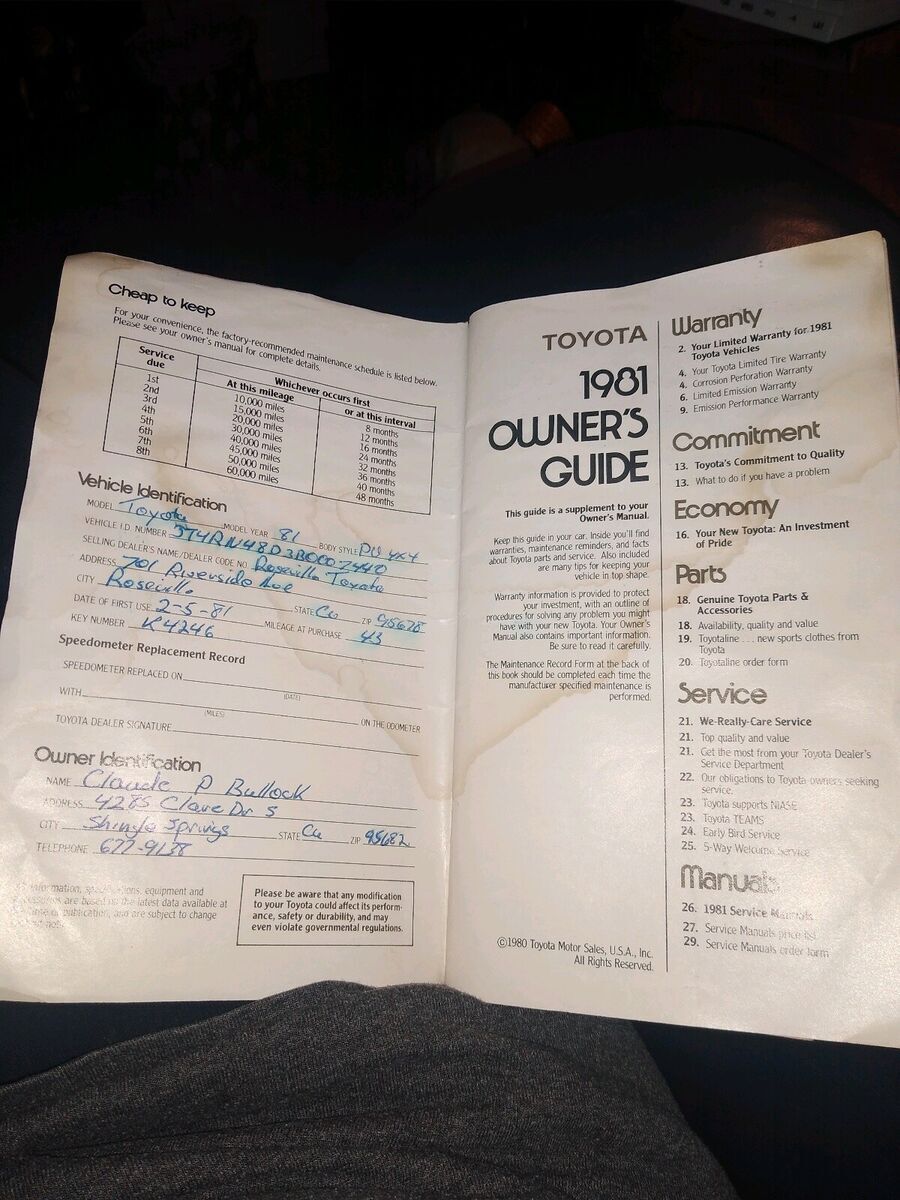 Cheap to keep
For your convenience, the factory-recommended maintenance schedule is listed below.
Please see your owner's manual for complete details.
Service due
Whichever occurs first
At this mileage
or at this interval
1st 10,000 miles 8 months
2nd 15,000 miles 12 months
3rd 20,000 miles 16 months
4th 30,000 miles 24 months
5th 40,000 miles 32 months
6th 45,000 miles 36 months
7th 50,000 miles 40 months
8th 60,000 miles 48 months
Vehicle Identification
MODEL Toyota MODEL YEAR 81 BODY STYLE PU 4x4
VEHICLE I.D. NUMBER
SELLING DEALER'S NAME/DEALER CODE NO. Roseville Toyota
ADDRESS 701 Riverside Ave
CITY Roseville STATE Ca ZIP 95678
DATE OF FIRST USE 2-5-81 MILEAGE AT PURCHASE 43
KEY NUMBER K4246
Speedometer Replacement Record
SPEEDOMETER REPLACED ON
(DATE)
WITH ON THE ODOMETER
(MILES)
TOYOTA DEALER SIGNATURE
Owner Identification
NAME Claude P Bullock
ADDRESS 4285 Clare Dr S
CITY Shingle Springs STATE Ca ZIP 95682
TELEPHONE 677-9138
information, equipment and
are based on the latest data available at
publication, and are subject to change
Please be aware that any modification
to your Toyota could affect its perform-
ance, safety or durability, and may
even violate governmental regulations.
TOYOTA
1981
OWNER'S
GUIDE
This guide is a supplement to your
Owner's Manual.
Keep this guide in your car. Inside you'll find
warranties, maintenance reminders, and facts
about Toyota parts and service. Also included
are many tips for keeping your
vehicle in top shape.
Warranty information is provided to protect
your investment, with an outline of
procedures for solving any problem you might
have with your new Toyota. Your Owner's
Manual also contains important information.
Be sure to read it carefully.
The Maintenance Record Form at the back of
this book should be completed each time the
manufacturer specified maintenance is
performed.
©1980 Toyota Motor Sales, U.S.A., Inc.
All Rights Reserved.
Warranty
2. Your Limited Warranty for 1981
Toyota Vehicles
4. Your Toyota Limited Tire Warranty
4. Corrosion Perforation Warranty
6. Limited Emission Warranty
9. Emission Performance Warranty
Commitment
13. Toyota's Commitment to Quality
13. What to do if you have a problem
Economy
16. Your New Toyota: An Investment
of Pride
Parts
18. Genuine Toyota Parts &
Accessories
18. Availability, quality and value
19. Toyotaline . . . new sports clothes from
Toyota
20. Toyotaline order form
Service
21. We-Really-Care Service
21. Top quality and value
21. Get the most from your Toyota Dealer's
Service Department
22. Our obligations to Toyota owners seeking
service.
23. Toyota supports NIASE
23. Toyota TEAMS
24. Early Bird Service
25. 5-Way Welcome Service
Manuals
26. 1981 Service Manuals
27. Service Manuals price list
29. Service Manuals order form